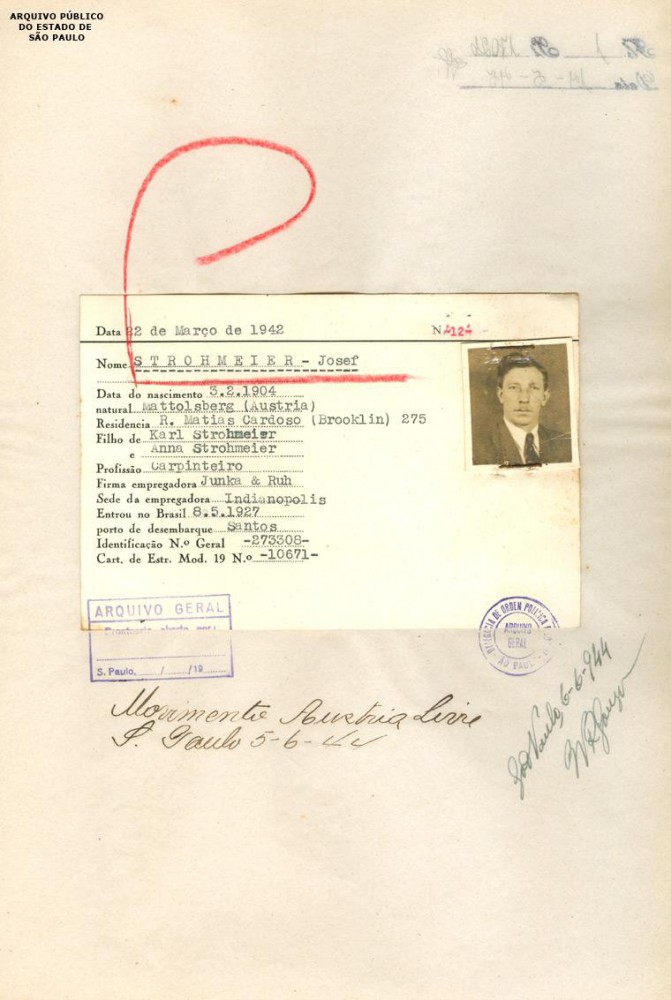 ARQUIVO PÚBLICO
DO ESTADO DE
SÃO PAULO
Data 22 de Março de 1942 N 124
Nome STROHMEIER - Josef
Data do nascimento 3.2.1904
natural Mattolsberg (Austria)
Residencia R. Matias Cardoso (Brooklin) 275
Filho de Karl Strohmeier
e Anna Strohmeier
Profissão Carpinteiro
Firma empregadora Junka & Ruh
Sede da empregadora Indianopolis
Entrou no Brasil 8.5.1927
porto de desembarque Santos
Identificação N.º Geral -273308-
Cart. de Estr. Mod. 19 N.º -10671-
ARQUIVO GERAL
S. Paulo, / /19
DE ORDEM POLITICA
ARQUIVO
GERAL
PAULO
Movimento Austria Livre
S. Paulo 5-6-44
São Paulo, 6-6-944